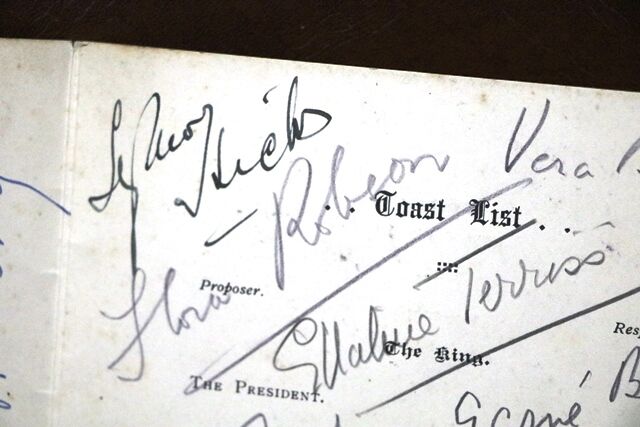 Seymour Hicks
Flora Robson
Vera
. . Toast List . .
Proposer.
Ellaline Terriss
The King.
Res
THE PRESIDENT.
B